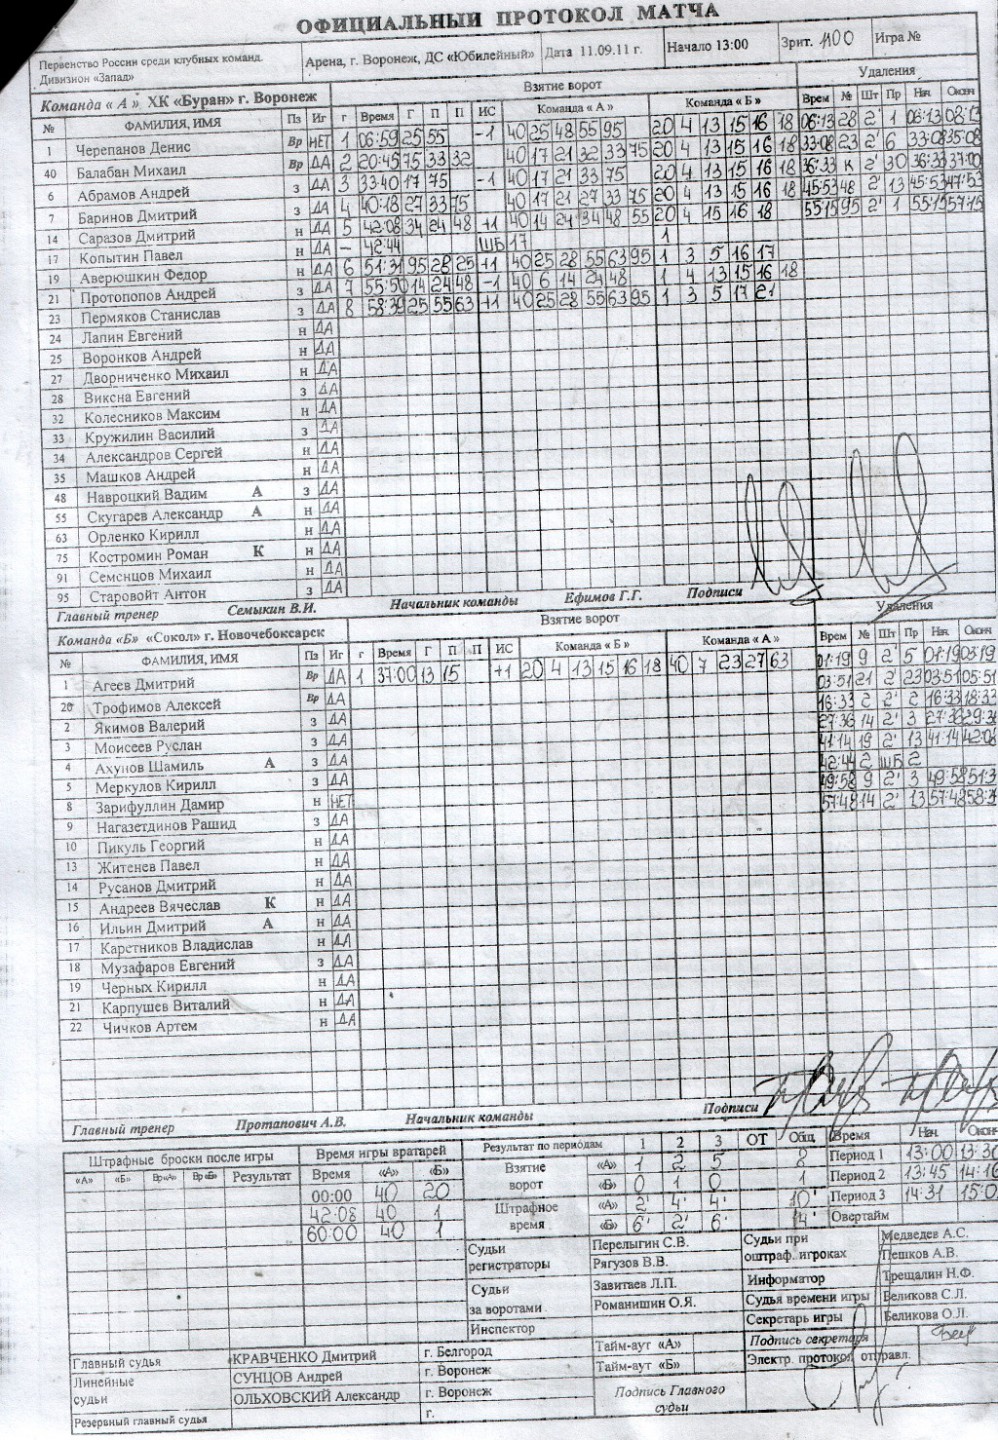 ОФИЦИАЛЬНЫЙ ПРОТОКОЛ МАТЧА
Первенство России среди клубных команд. Дивизион «Запад» Арена, г. Воронеж, ДС «Юбилейный» Дата 11.09.11 г. Начало 13:00 Зрит. 1100 Игра №
Команда « А » ХК «Буран» г. Воронеж Взятие ворот Удаления
№ ФАМИЛИЯ, ИМЯ Пз Иг г Время Г П П ИС Команда « А » Команда « Б » Врем № Шт Пр Нач. Оконч
1 Черепанов Денис Вр НЕТ 1 06:59 25 55 -1 40 25 48 55 95 20 4 13 15 16 18 06:13 28 2' 1 06:13 08:13
40 Балабан Михаил Вр ДА 2 20:45 75 33 32 40 17 21 32 33 75 20 4 13 15 16 18 33:08 23 2' 6 33:08 35:08
6 Абрамов Андрей з ДА 3 33:40 17 75 -1 40 17 21 33 75 20 4 13 15 16 18 36:33 К 2' 30 36:33 37:00
7 Баринов Дмитрий з ДА 4 40:18 27 33 75 40 17 21 27 33 75 20 4 13 15 16 18 45:53 48 2' 13 45:53 47:53
14 Саразов Дмитрий н ДА 5 42:08 34 24 48 +1 40 14 24 34 48 55 20 4 15 16 18 55:15 95 2' 1 55:15 57:15
17 Копытин Павел н ДА – 42:44 ШБ 17 1
19 Аверюшкин Федор н ДА 6 51:31 95 28 25 +1 40 25 28 55 63 95 1 3 5 16 17
21 Протопопов Андрей н ДА 7 55:50 14 24 48 -1 40 6 14 24 48 1 4 13 15 16 18
23 Пермяков Станислав з ДА 8 58:39 25 55 63 +1 40 25 28 55 63 95 1 3 5 17 21
24 Лапин Евгений н ДА
25 Воронков Андрей н ДА
27 Дворниченко Михаил н ДА
28 Виксна Евгений з ДА
32 Колесников Максим н ДА
33 Кружилин Василий з ДА
34 Александров Сергей н ДА
35 Машков Андрей н ДА
48 Навроцкий Вадим А з ДА
55 Скугарев Александр А н ДА
63 Орленко Кирилл н ДА
75 Костромин Роман К н ДА
91 Семенцов Михаил н ДА
95 Старовойт Антон з ДА
Главный тренер Семыкин В.И. Начальник команды Ефимов Г.Г. Подписи
Команда «Б» «Сокол» г. Новочебоксарск Взятие ворот Удаления
№ ФАМИЛИЯ, ИМЯ Пз Иг г Время Г П П ИС Команда « Б » Команда « А » Врем № Шт Пр Нач. Оконч
1 Агеев Дмитрий Вр ДА 1 37:00 13 15 +1 20 4 13 15 16 18 40 7 23 27 63 01:19 9 2' 5 01:19 03:19
20 Трофимов Алексей Вр ДА 03:51 21 2 23 03:51 05:51
2 Якимов Валерий з ДА 16:33 2 2' 2 16:33 18:33
3 Моисеев Руслан з ДА 27:36 14 2' 3 27:36 29:36
4 Ахунов Шамиль А з ДА 41:14 19 2' 13 41:14 42:08
5 Меркулов Кирилл з ДА 42:44 2 ШБ 2
8 Зарифуллин Дамир н НЕТ 49:58 9 2' 3 49:58 51:3
9 Нагазетдинов Рашид з ДА 57:48 14 2' 13 57:48 58:3
10 Пикуль Георгий н ДА
13 Житенев Павел н ДА
14 Русанов Дмитрий н ДА
15 Андреев Вячеслав К н ДА
16 Ильин Дмитрий А н ДА
17 Каретников Владислав н ДА
18 Музафаров Евгений з ДА
19 Черных Кирилл н ДА
21 Карпушев Виталий н ДА
22 Чичков Артем н ДА
Главный тренер Протапович А.В. Начальник команды Подписи
Штрафные броски после игры Время игры вратарей Результат по периодам 1 2 3 ОТ Общ. Время Нач. Оконч
«А» «Б» Вр«А» Вр«Б» Результат Время «А» «Б» Взятие ворот «А» 1 2 5 8 Период 1 13:00 13:30
00:00 40 20 «Б» 0 1 0 1 Период 2 13:45 14:16
42:08 40 1 Штрафное время «А» 2' 4' 4' 10' Период 3 14:31 15:0
60:00 40 1 «Б» 6' 2' 6' 14' Овертайм
Судьи регистраторы Перелыгин С.В. Судьи при оштраф. игроках Медведев А.С.
Рягузов В.В. Пешков А.В.
Судьи за воротами Завитаев Л.П. Информатор Трещалин Н.Ф.
Романишин О.Я. Судья времени игры Великова С.Л.
Инспектор Секретарь игры Беликова О.Л.
Тайм-аут «А» Подпись секретаря
Главный судья КРАВЧЕНКО Дмитрий г. Белгород Тайм-аут «Б» Электр. протокол отправл.
Линейные судьи СУНЦОВ Андрей г. Воронеж Подпись Главного судьи
ОЛЬХОВСКИЙ Александр г. Воронеж
Резервный главный судья г.